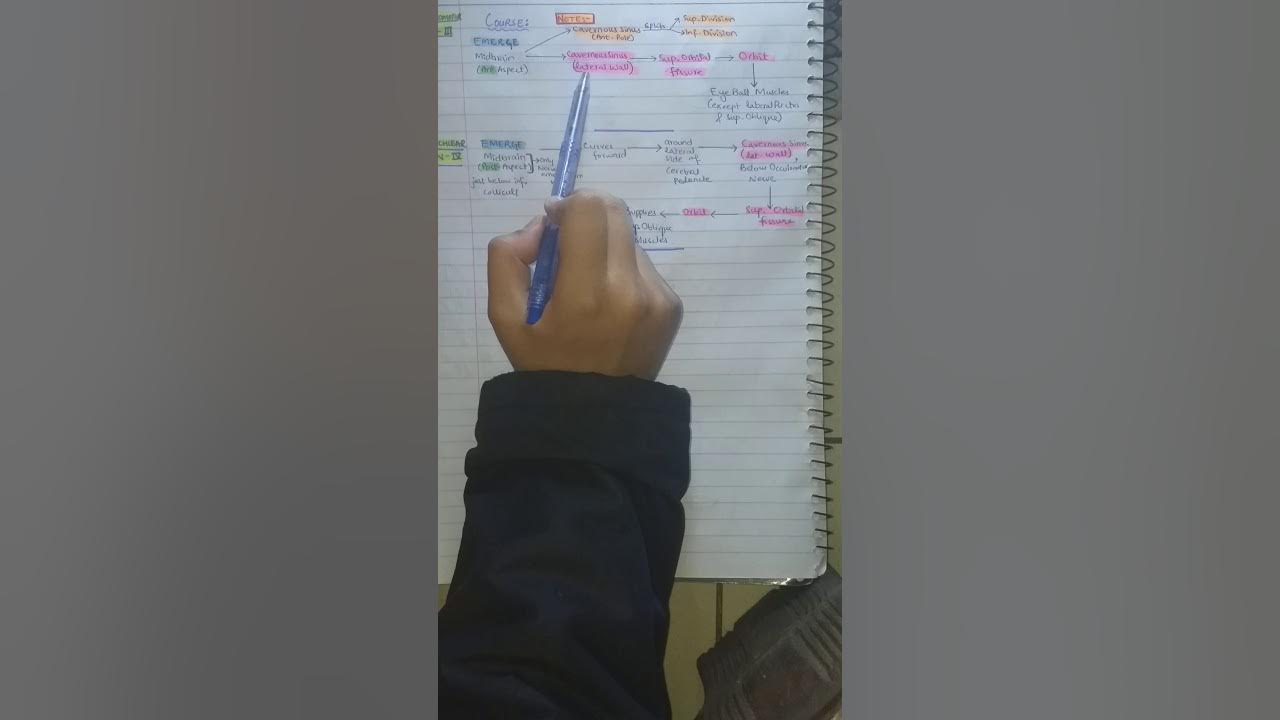 COURSE:
NOTES:-
Cavernous Sinus
(Ant. Pole)
splits
Sup. Division
Inf. Division
- III
EMERGE
Midbrain
(Ant Aspect)
Cavernous Sinus
(lateral wall)
Sup. Orbital
fissure
Orbit
Eye Ball Muscles
(except lateral Rectus
& Sup. Oblique)
N-IV
EMERGE
Midbrain
(Post Aspect)
just below inf.
colliculi
only
curves
forward
around
lateral
side of
cerebral
peduncle
Cavernous Sinus
(lat. wall)
Below Occulomotor
Nerve
Sup. Orbital
fissure
Orbit
supplies
Oblique
Muscles